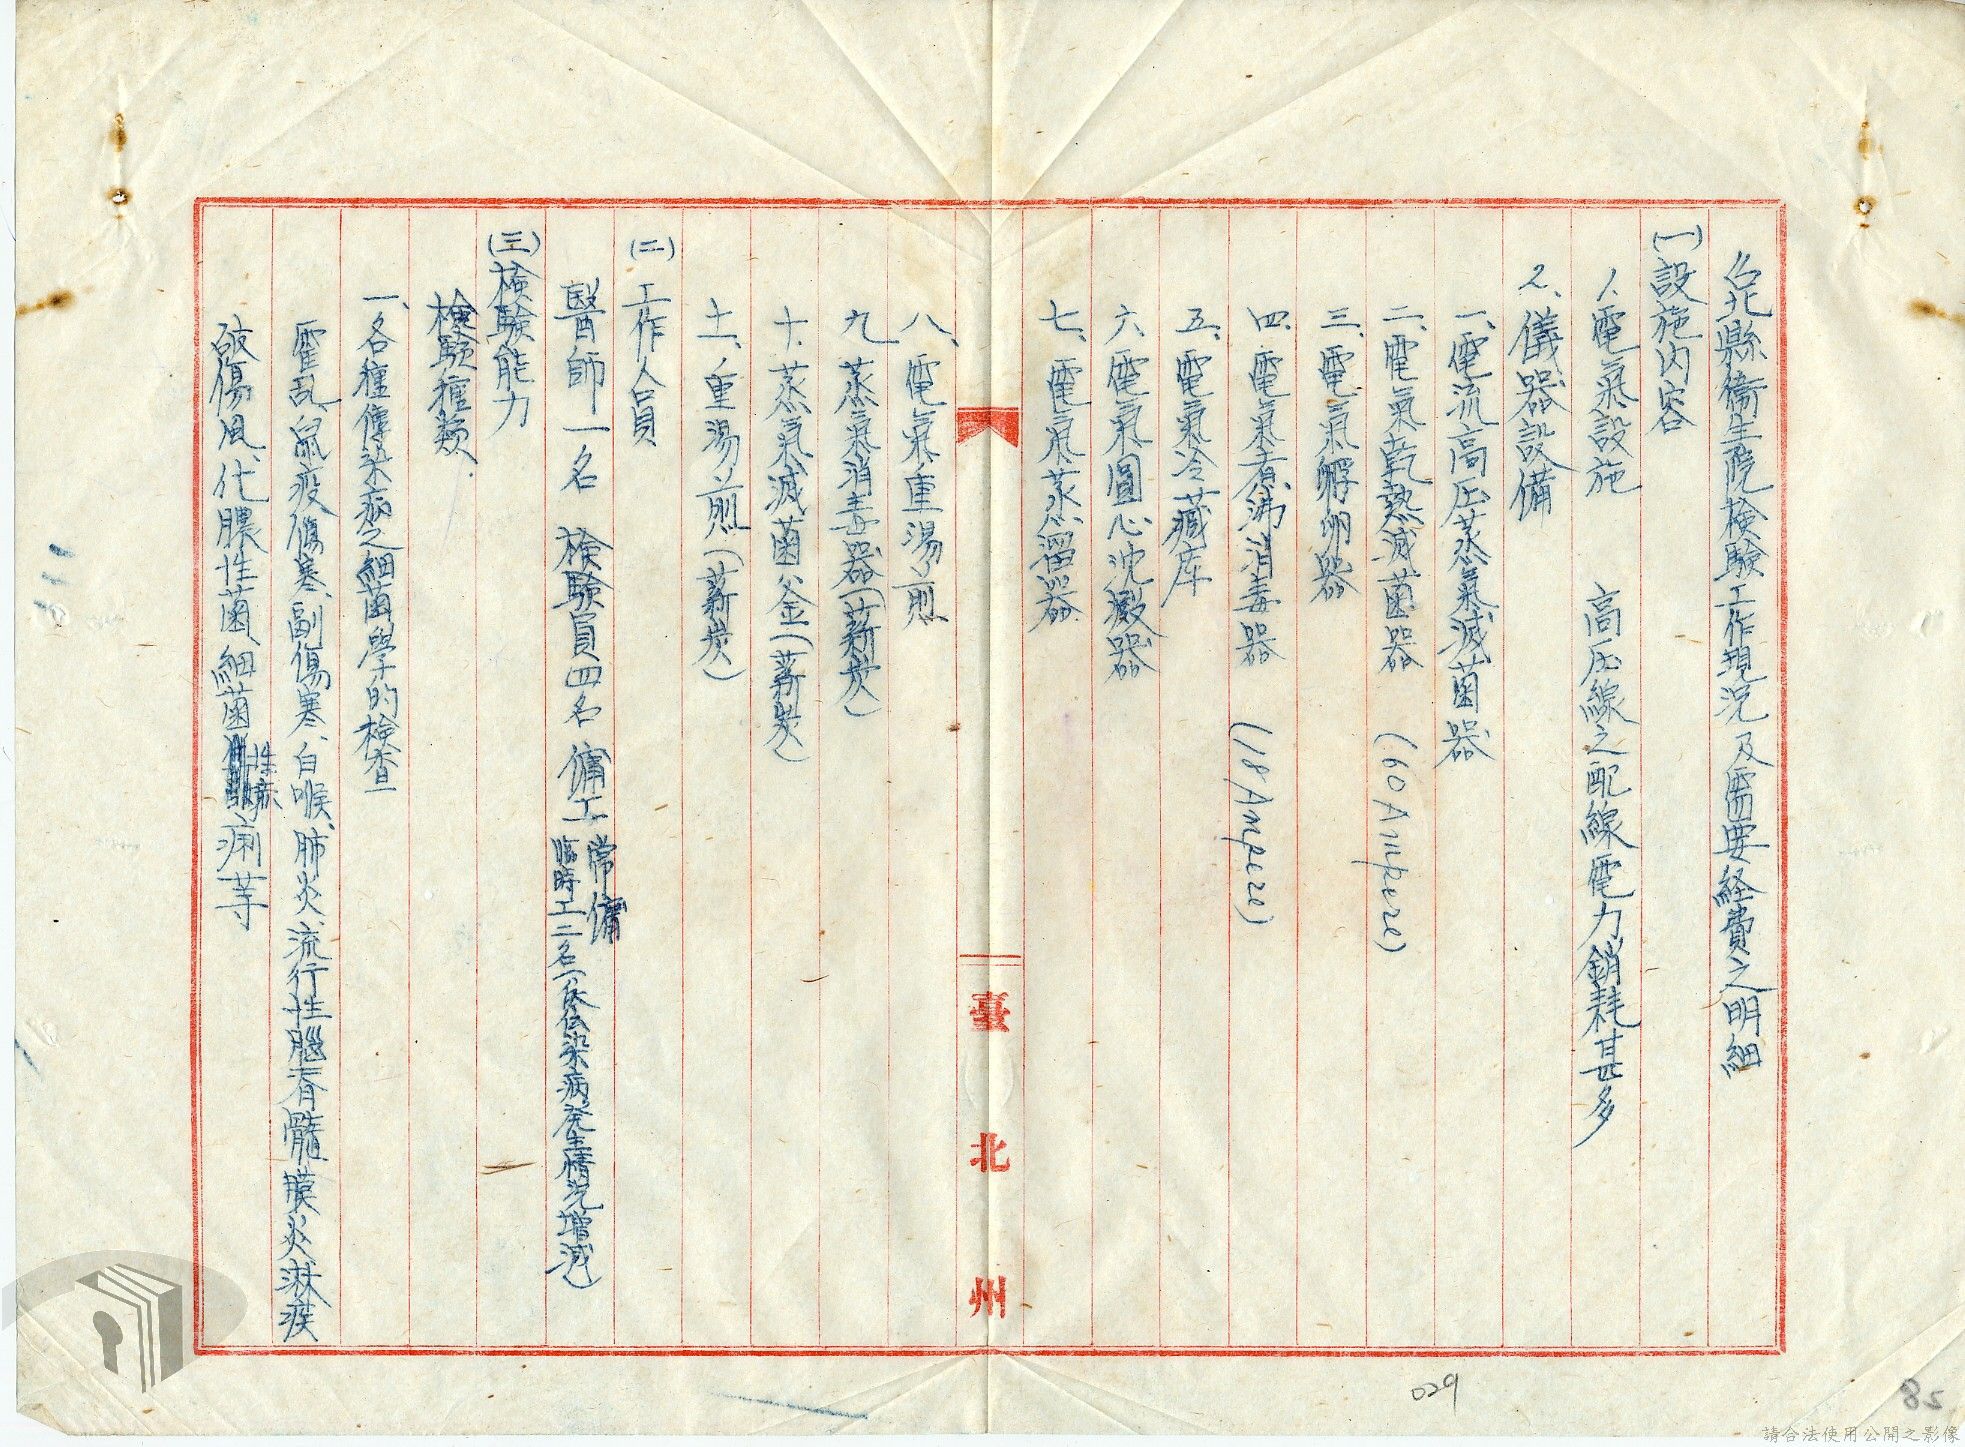 台北縣衛生院検驗工作現況及需要経費之明細
(一)設施内容
1.電氣設施　高圧線之配線電力銷耗甚多
2.儀器設備
一、電流高圧蒸氣滅菌器
二、電氣乾熱滅菌器　(60 Ampere)
三、電氣孵卵器
四、電氣煮沸消毒器　(18 Ampere)
五、電氣冷藏库
六、電氣圓心沈澱器
七、電氣蒸溜器
臺北州
八、電氣重湯煎
九、蒸氣消毒器(薪炭)
十、蒸氣滅菌釜(薪炭)
十一、重湯煎(薪炭)
(二)工作人員
醫師一名　検驗員四名　傭工
常傭
臨時工二名(依伝染病発生情況增減)
(三)検驗能力
検驗種類
一、各種傳染病之細菌學的検查
霍乱、鼠疫、傷寒、副傷寒、白喉、肺炎、流行性腦脊髓膜炎、淋疾
破傷風、化膿性菌、細菌性赤痢等
029
28
請合法使用公開之影像